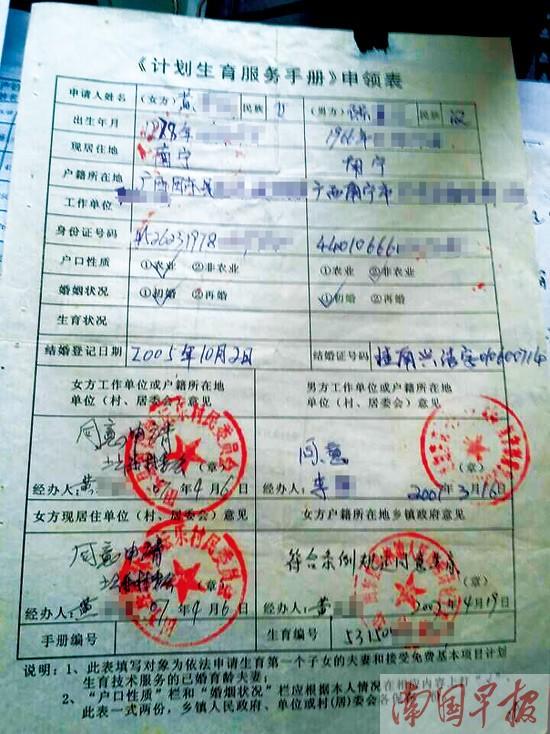 《计划生育服务手册》申领表
申请人姓名 (女方) 黄 民族 (男方) 陈 民族 汉
出生年月 1978年 1966年
现居住地 南宁 南宁
户籍所在地 广西田东县 广西南宁市
工作单位
身份证号码 4526231978
户口性质 ①农业 ②非农业 ①农业 ②非农业
婚姻状况 ①初婚 ②再婚 ①初婚 ②再婚
生育状况
结婚登记日期 2005年10月2日 结婚证号码
女方工作单位或户籍所在地 男方工作单位或户籍所在地
单位(村、居委会)意见 单位(村、居委会)意见
同意申请 同意
(章) (章)
经办人:黄 07年4月6日 经办人:李 3月16日
女方现居住单位(村、居委会)意见 女方户籍所在地乡镇政府意见
同意申请 符合条例规定同意
(章) (章)
经办人:黄 07年4月6日 经办人:黄 4月19日
手册编号 生育编号
说明:1、此表填写对象为依法申请生育第一个子女的夫妻和接受免费基本项目计划
生育技术服务的已婚育龄夫妻;
2、“户口性质”栏和“婚姻状况”栏应根据本人情况在相应内容上打
此表一式两份,乡镇人民政府、单位或村(居)委会各
南国早报